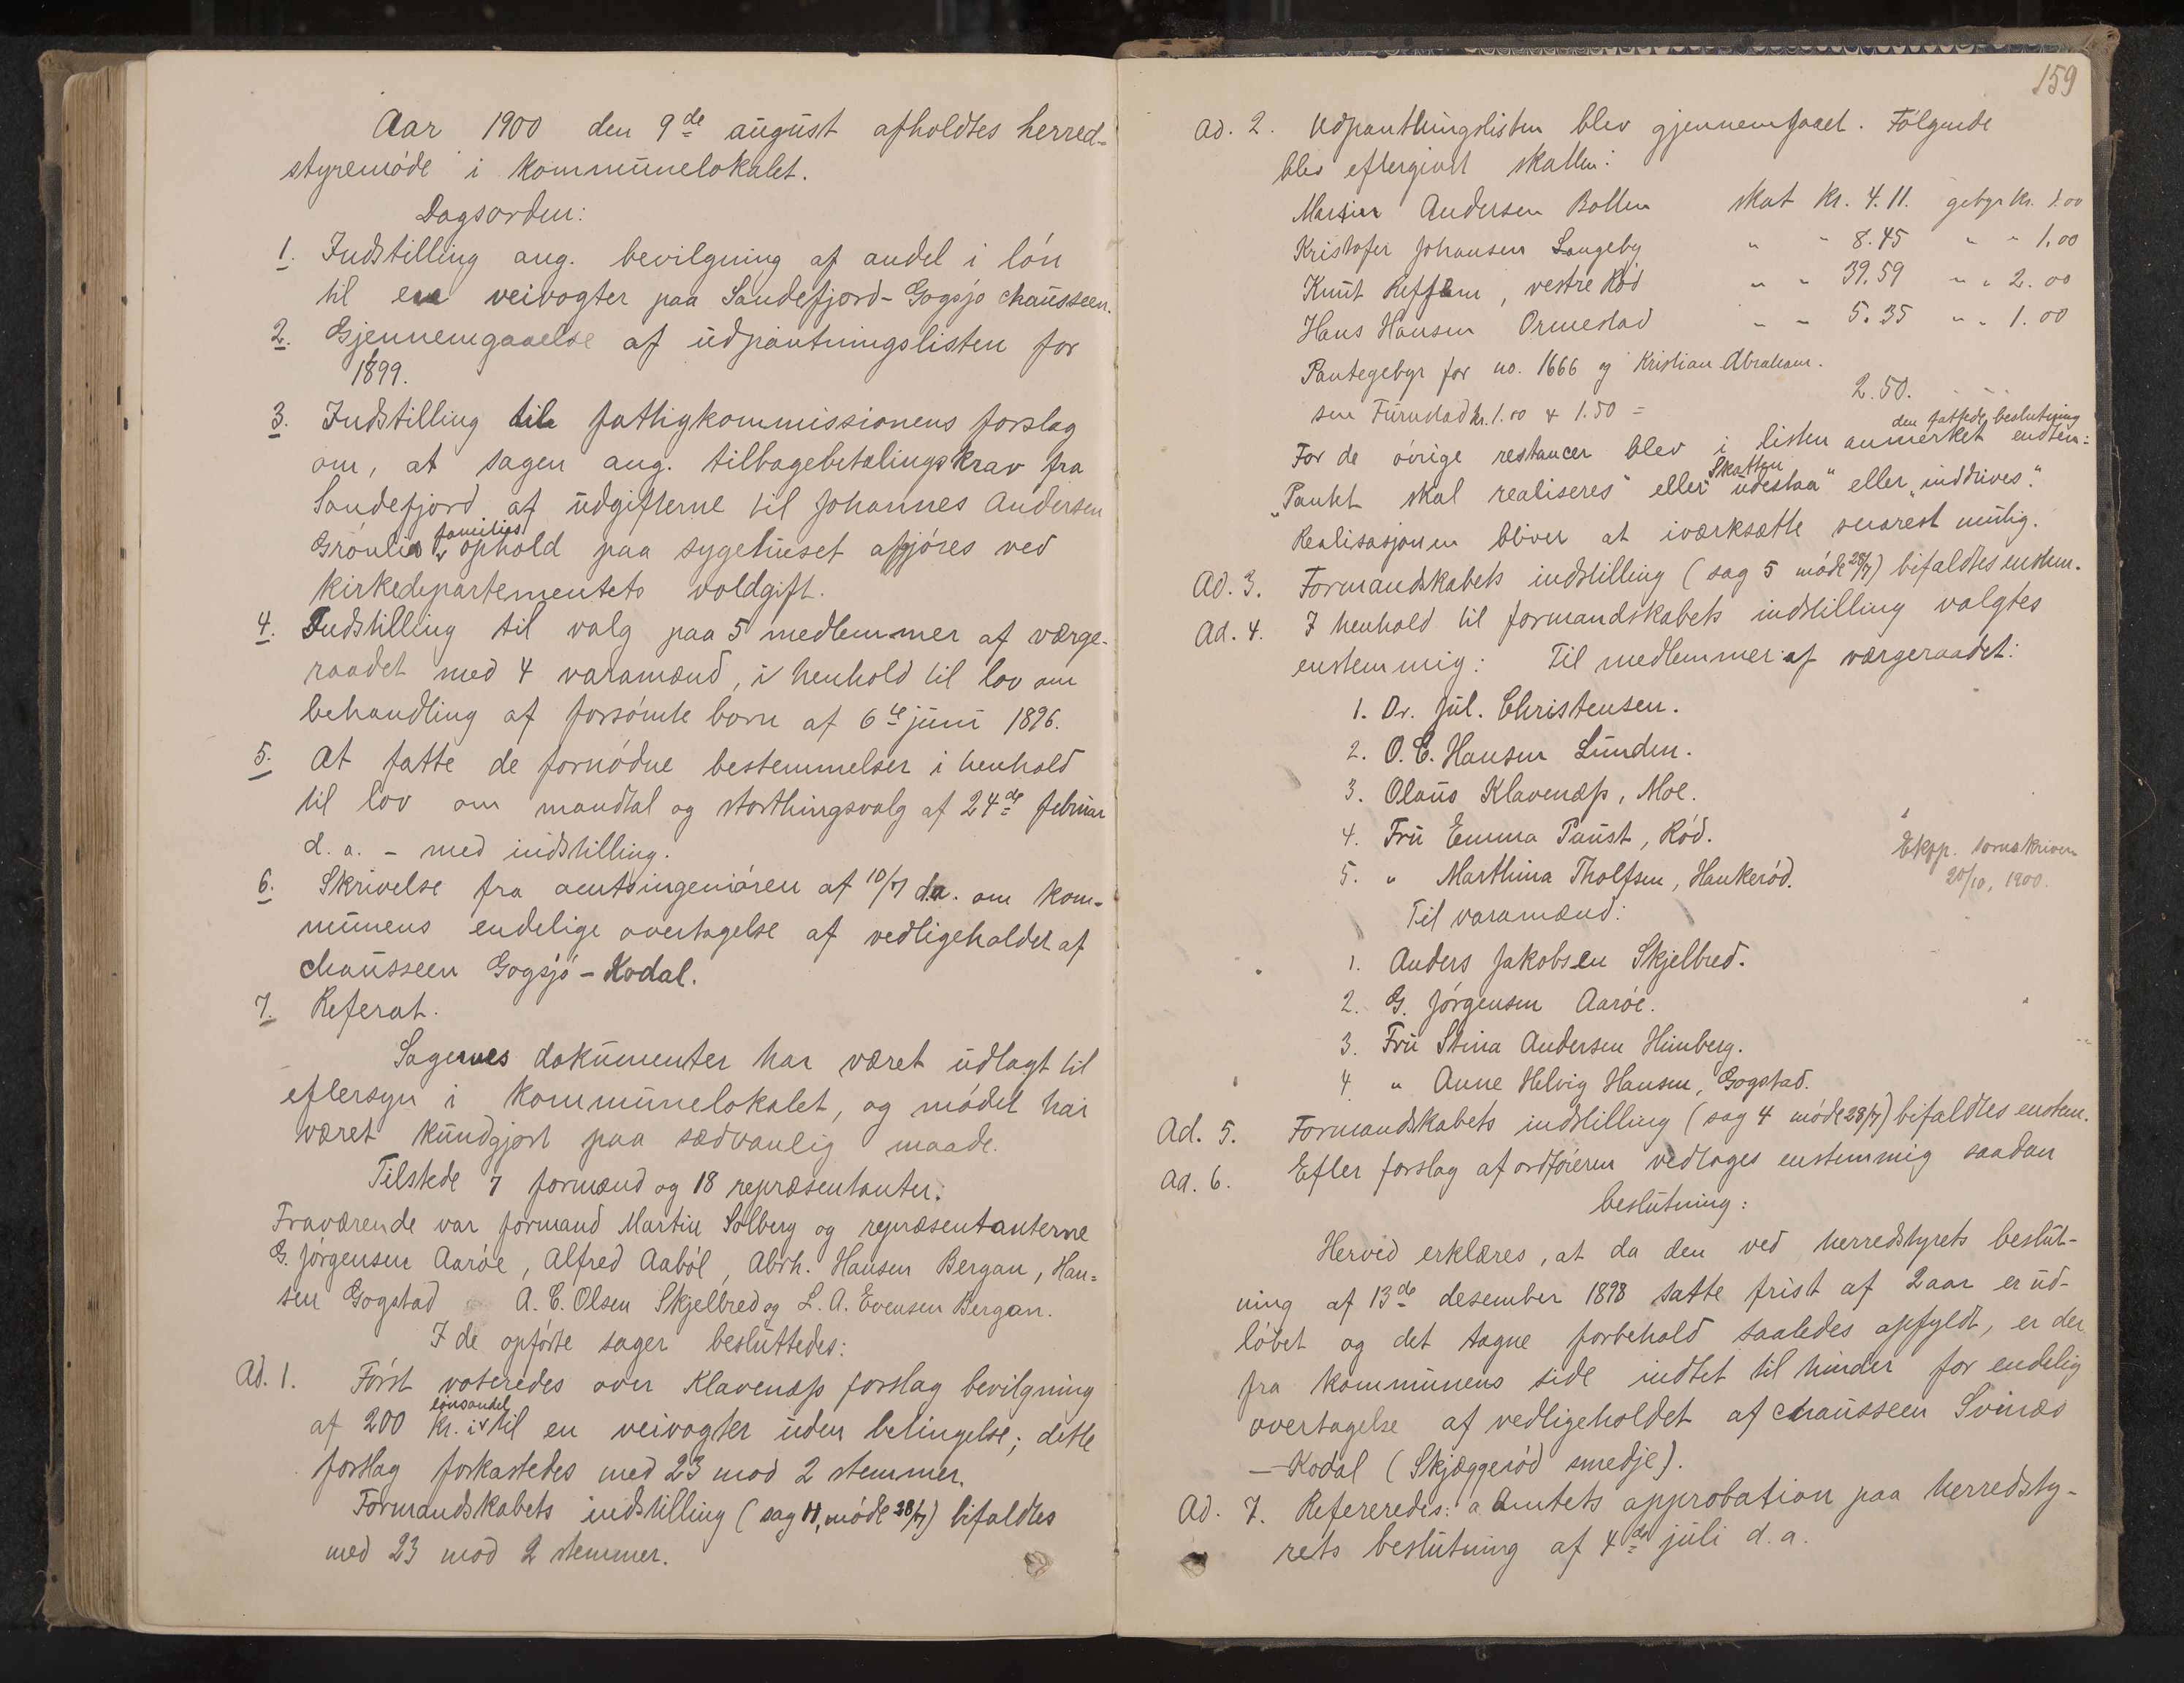 Aar 1900 den 9de august afholdtes herred-
styremøde i kommunelokalet.
Dagsorden:
1. Indstilling ang. bevilgning af andel i løn
til en veivogter paa Sandefjord-Gogsjø chausseen.
2. Gjennemgaaelse af udpantningslisten for
1899.
3. Indstilling til fattigkommissionens forslag
om, at sagen ang. tilbagebetalingskrav fra
Sandefjord af udgifterne til Johannes Andersen
families
Grønlis ophold paa sygehuset afgjøres ved
kirkedepartementets voldgift.
4. Indstilling til valg paa 5 medlemmer af værge-
raadet med 4 varamænd, i henhold til lov om
behandling af forsømte børn af 6te juni 1896.
5. At fatte de fornødne bestemmelser i henhold
til lov om mandtal og storthingsvalg af 24de februar
d. a. - med indstilling.
6. Skrivelse fra amtsingeniøren af 10/7 d.a. om kom-
munens endelige overtagelse af vedligeholdet af
chausseen Gogsjø - Kodal.
7. Referat.
Sagernes dokumenter har været udlagt til
eftersyn i kommunelokalet, og mødet har
været kundgjort paa sædvanlig maade.
Tilstede 7 formænd og 18 repræsentanter.
Fraværende var formand Martin Solberg og repræsentanterne
G. Jørgensen Aarøe, Alfred Aabøl, Abrh. Hansen Bergan, Han-
sen Gogstad A. C. Olsen Skjelbred og L. A. Evensen Bergan.
I de opførte sager besluttedes:
Ad. 1. Først voteredes over Klavenæs forslag bevilgning
lønsandel
af 200 kr. i til en veivogter uden betingelse; dette
forslag forkastedes med 23 mod 2 stemmer.
Formandskabets indstilling (sag 11, møde 28/7) bifaldtes
med 23 mod 2 stemmer.
159
Ad. 2. Udpantningslisten blev gjennemgaaet. Følgende
blev eftergivet skatten:
Martin Andersen Bollen skat kr. 4.11. gebyr kr. 1.00
Kristofer Johansen Langeby " " 8.45 " " 1.00
Knut Reffem, vestre Rød " " 39.59 " " 2.00
Hans Hansen Ormestad " " 5.35 " " 1.00
Pantegebyr for no. 1666 og Kristian Abraham-
sen Furustad kr. 1.00 & 1.50 = 2.50.
den fattede beslutning
For de øvrige restancer blev i listen anmerket enten:
Skatten
"Pantet skal realiseres" eller "udestaa" eller "inddrives".
Realisasjonen bliver at iværksætte snarest mulig.
Ad. 3. Formandskabets indstilling (sag 5 møde 28/7) bifaldtes enstem.
Ad. 4. I henhold til formandskabets indstilling valgtes
enstemmig: Til medlemmer af værgeraadet:
1. Dr. Jul. Christensen.
2. O. C. Hansen Lunden.
3. Olaus Klavenæs, Moe.
4. Fru Emma Paust, Rød.
5. " Marthina Tholfsen, Haukerød.
Eksp. sorenskriveren
20/10, 1900.
Til varamænd:
1. Anders Jakobsen Skjelbred.
2. G. Jørgensen Aarøe.
3. Fru Stina Andersen Himberg.
4. " Anne Helvig Hansen, Gogstad.
Ad. 5. Formandskabets indstilling (sag 4 møde 28/7) bifaldtes enstem.
Ad. 6. Efter forslag af ordføreren vedtoges enstemmig saadan
beslutning:
Herved erklæres, at da den ved herredstyrets beslut-
ning af 13de desember 1898 satte frist af 2 aar er ud-
løbet og det tagne forbehold saaledes opfyldt, er der
fra kommunens side indtet til hinder for endelig
overtagelse af vedligeholdet af chausseen Svinæs
-Kodal (Skjæggerød smedje).
Ad. 7. Refereredes: a Amtets approbation paa herredsty-
rets beslutning af 4de juli d. a.